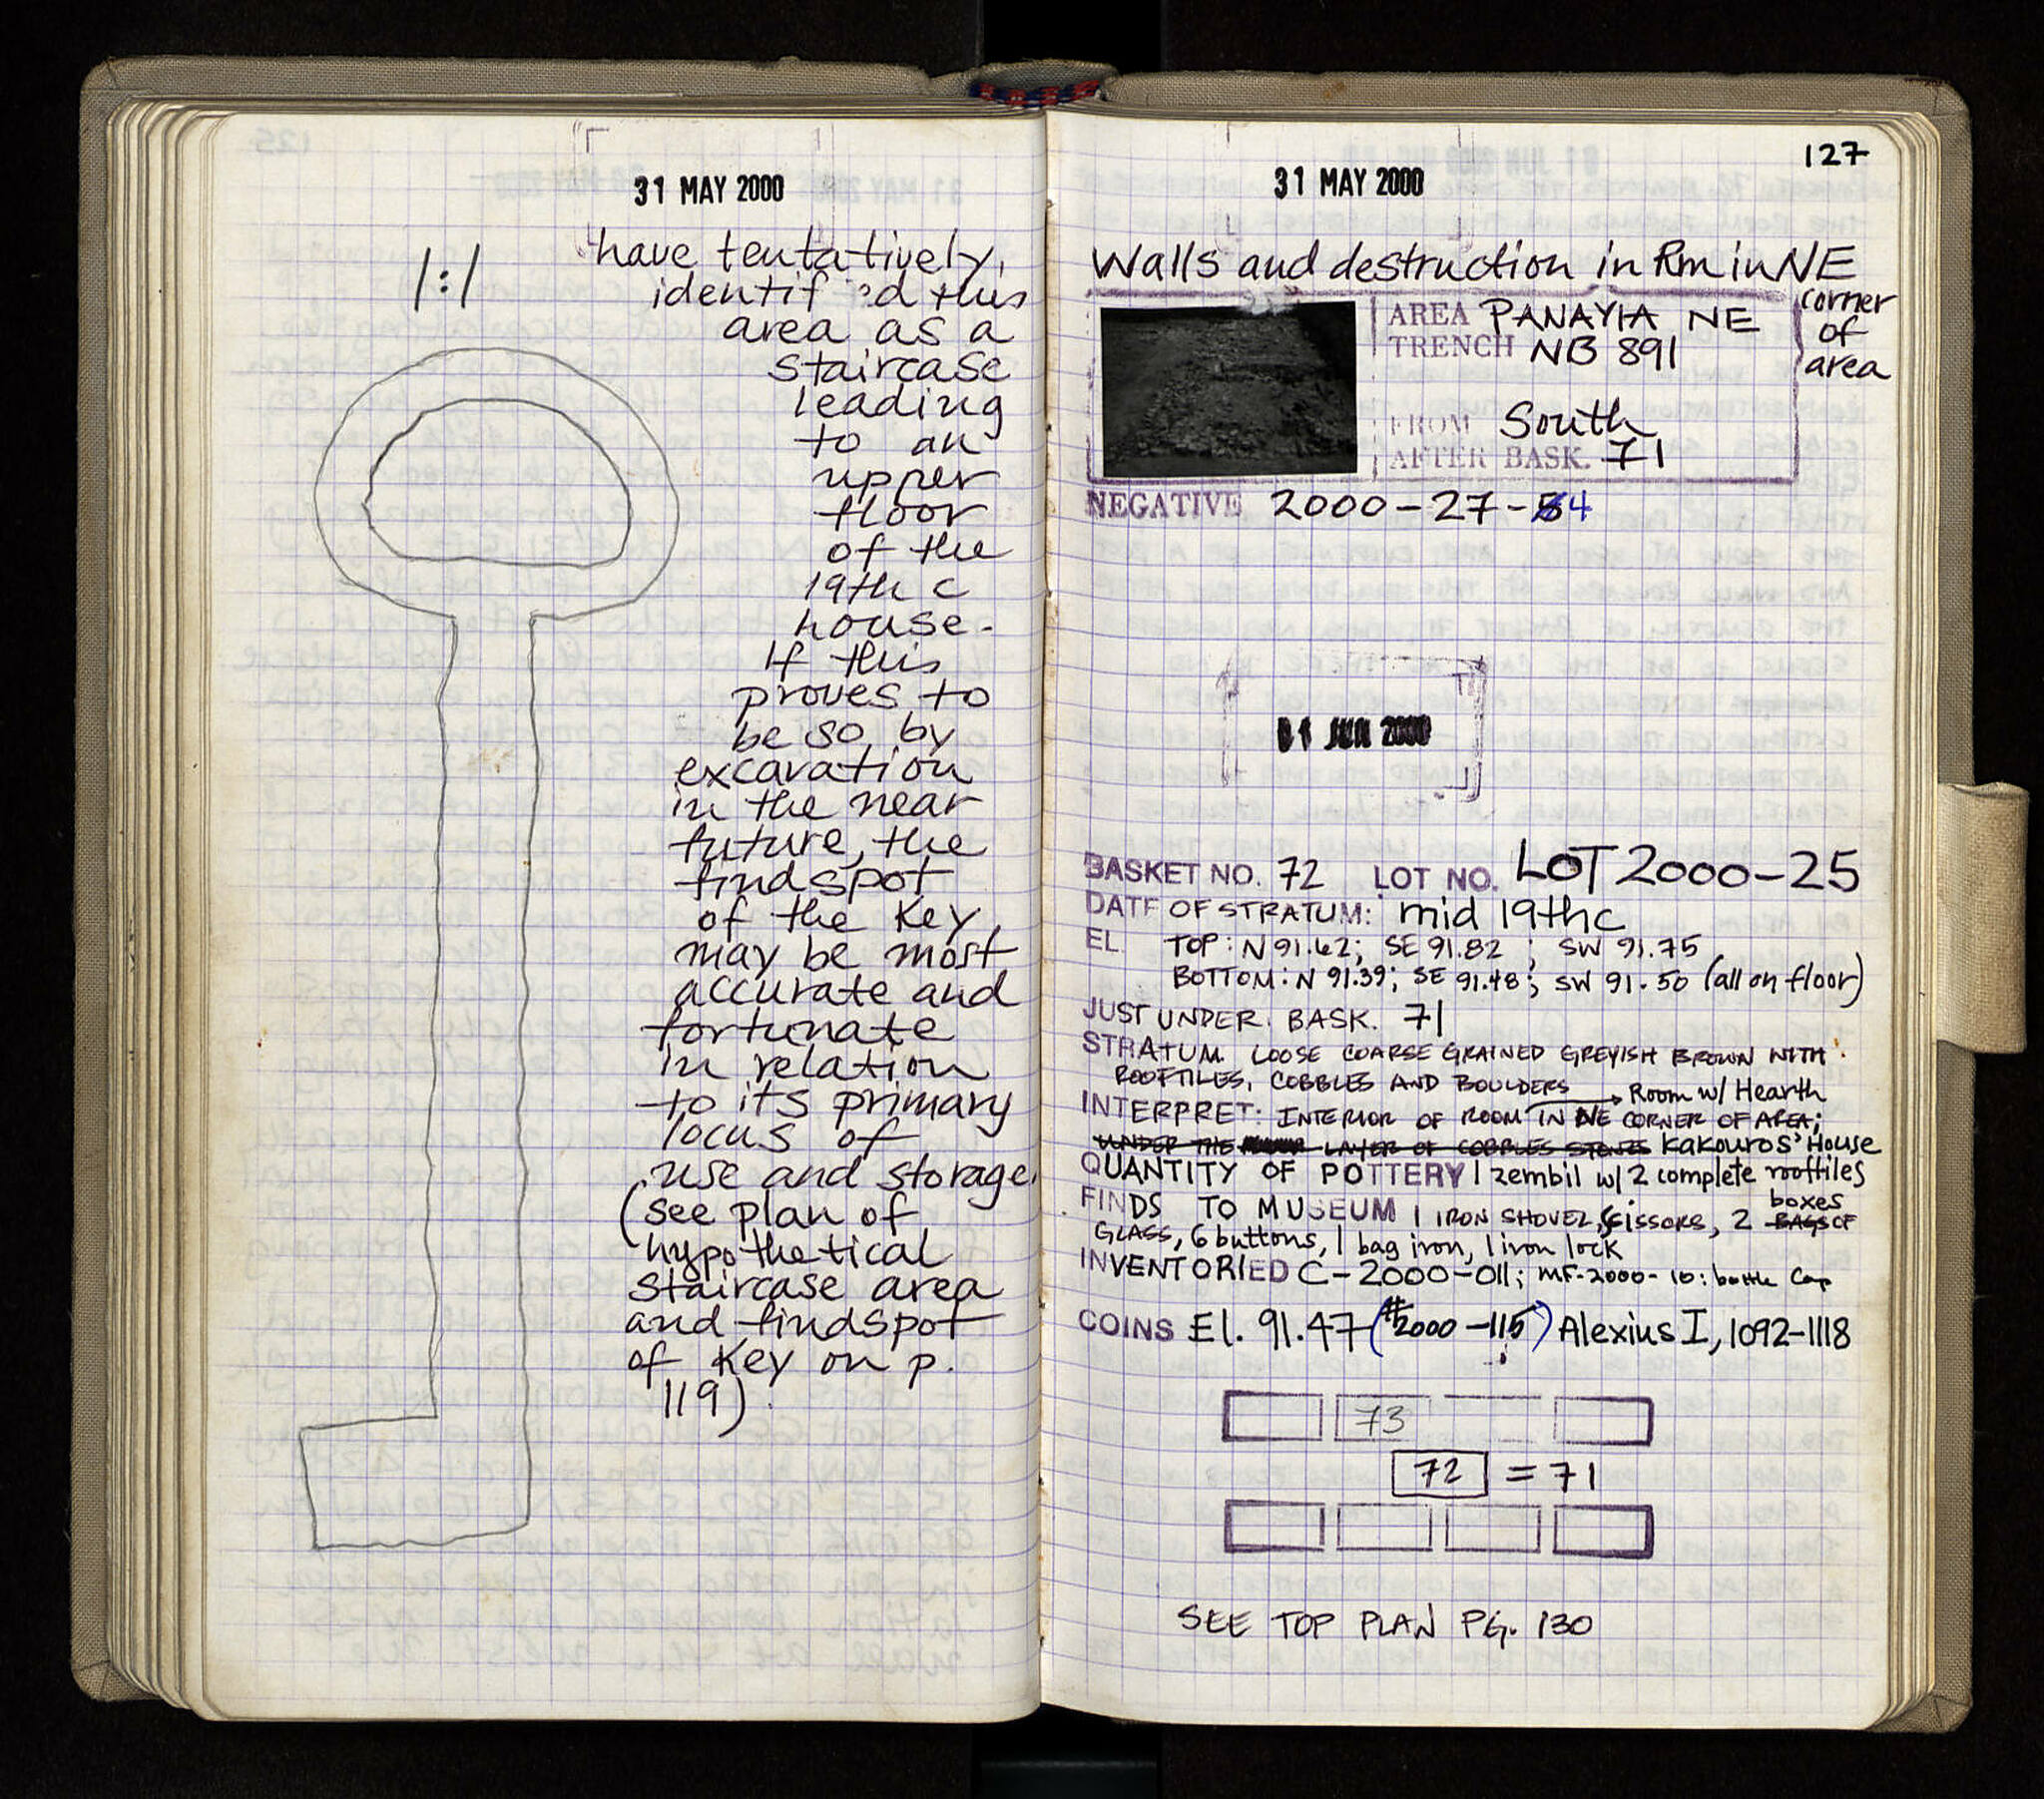 31 MAY 2000
1:1
have tentatively,
identified this
area as a
staircase
leading
to an
upper
floor
of the
19th c
house.
If this
proves to
be so by
excavation
in the near
future, the
findspot
of the Key
may be most
accurate and
fortunate
in relation
to its primary
locus of
use and storage.
(see plan of
hypothetical
staircase area
and findspot
of Key on p.
119)
127
31 MAY 2000
Walls and destruction in Rm in NE
corner
of
area
AREA PANAYIA NE
TRENCH NB 891
FROM South
AFTER BASK. 71
NEGATIVE 2000-27-4
01 JUN 2000
BASKET NO. 72 LOT NO. LOT 2000-25
DATE OF STRATUM: mid 19thc
EL. TOP: N 91.62; SE 91.82; SW 91.75
BOTTOM: N 91.39; SE 91.48; SW 91.50 (all on floor)
JUST UNDER BASK. 71
STRATUM LOOSE COARSE GRAINED GREYISH BROWN WITH
ROOFTILES, COBBLES AND BOULDERS
Room w/ Hearth
INTERPRET: INTERIOR OF ROOM IN NE CORNER OF AREA;
UNDER THE LAYER OF COBBLES STONES Kakouros' House
QUANTITY OF POTTERY 1 zembil w/ 2 complete rooftiles
FINDS TO MUSEUM 1 IRON SHOVEL, SCISSORS, 2 boxes BAGS OF
GLASS, 6 buttons, 1 bag iron, 1 iron lock
INVENTORIED C-2000-011; MF-2000-10: bottle Cap
COINS El. 91.47 (#2000-115) Alexius I, 1092-1118
73
72 = 71
SEE TOP PLAN PG. 130